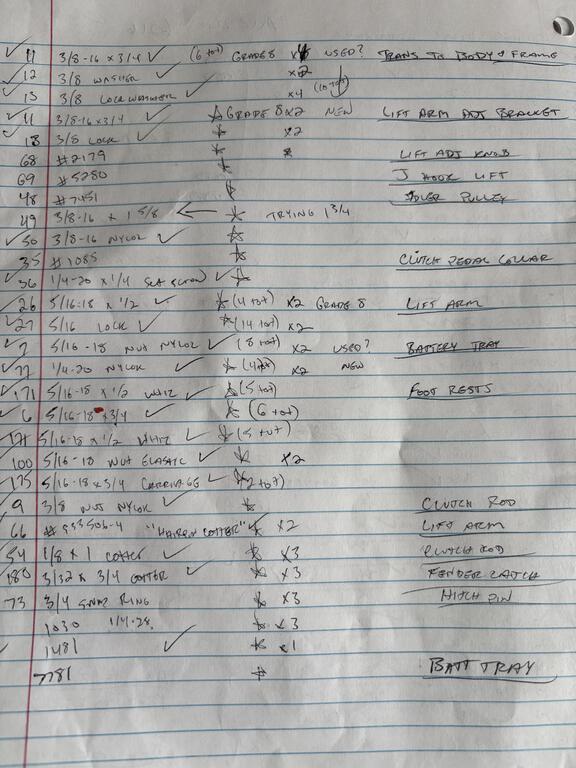 ✓ 11 3/8-16 x 3/4 ✓ (6 tot) GRADE 8 x4 USED? TRANS TO BODY & FRAME
✓ 12 3/8 WASHER ✓ x2
✓ 13 3/8 LOCK WASHER ✓ x4 (10 tot)
✓ 11 3/8-16 x 3/4 ✓ ☆ GRADE 8 x2 NEW LIFT ARM ADJ BRACKET
✓ 18 3/8 LOCK ✓ ☆ x2
68 #2179 ☆ LIFT ADJ KNOB
69 #5280 ☆ J HOOK LIFT
48 #7451 ☆ IDLER PULLEY
49 3/8-16 x 1 5/8 ← ☆ TRYING 1 3/4
✓ 50 3/8-16 NYLOC ✓ ☆
35 #1085 ☆ CLUTCH PEDAL COLLAR
✓ 36 1/4-20 x 1/4 SET SCREW ✓ ☆
✓ 26 5/16-18 x 1/2 ✓ ☆ (4 tot) x2 GRADE 8 LIFT ARM
✓ 27 5/16 LOCK ✓ ☆ (14 tot) x2
✓ 7 5/16-18 NUT NYLOC ✓ (8 tot) x2 USED? BATTERY TRAY
✓ 77 1/4-20 NYLOK ✓ ☆ (4 tot) x2 NEW
✓ 171 5/16-18 x 1/2 WHIZ ✓ ☆ (5 tot) FOOT RESTS
✓ 6 5/16-18 x 3/4 ✓ ☆ (6 tot)
✓ 171 5/16-18 x 1/2 WHIZ ✓ ☆ (5 tot)
100 5/16-18 NUT ELASTIC ✓ ☆ x2
✓ 175 5/16-18 x 3/4 CARRIAGE ✓ ☆ 2 tot)
✓ 9 3/8 NUT NYLOK ✓ ☆ CLUTCH ROD
✓ 66 # 933506-4 "HAIRPIN COTTER" ☆ x2 LIFT ARM
✓ 54 1/8 x 1 COTTER ✓ ☆ x3 CLUTCH ROD
✓ 180 3/32 x 3/4 COTTER ✓ ☆ x3 FENDER LATCH
✓ 73 3/4 SNAP RING ☆ x3 HITCH PIN
1030 1/4-28 ☆ x3
1481 ✓ ☆ x1
7781 ☆ BATT TRAY